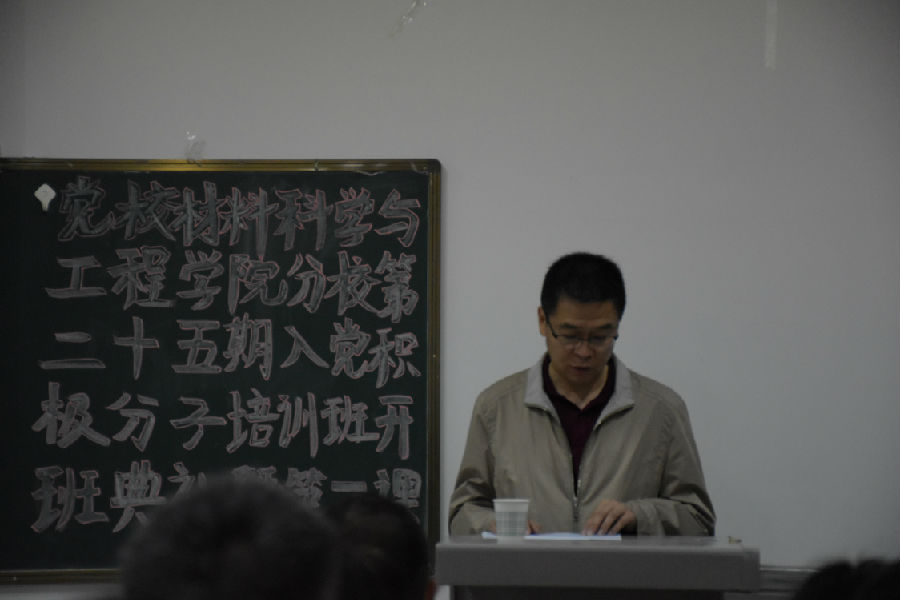 党校材料科学与
工程学院分校第
二十五期入党积
极分子培训班开
班典礼暨第一课